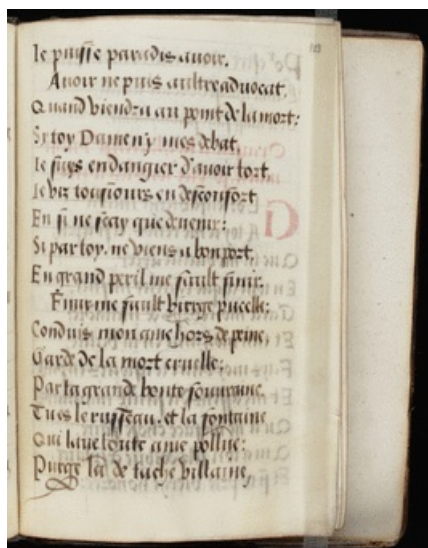 Ie puisse paradis avoir.
Avoir ne puis aultre advocat,
Quand viendra au point de la mort:
Si toy Dame n'y mes debat,
Ie suys en dangier d'avoir tort
Ie vis tousiours en desconfort
En si ne scay que devenir:
Si par toy, ne viens a bon port,
En grand peril me fault finir.
Finir me fault vierge pucelle:
Conduis mon ame hors de peine,
Garde de la mort cruelle:
Par ta grande bonte souveraine,
Tu es le ruisseau, et la fontaine
Qui lave toute ame pollue:
Purge la de tache villaine,